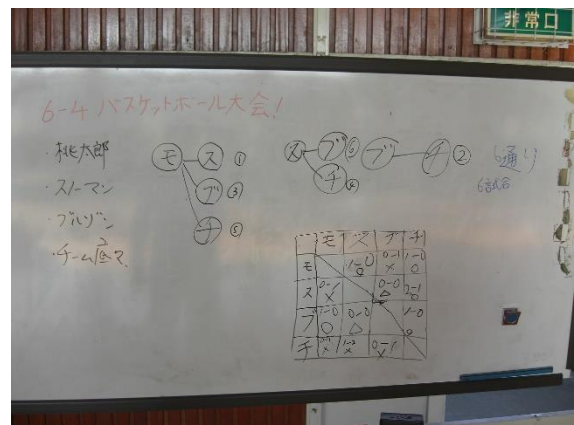 非常口
6-4 バスケットボール大会!
・桃太郎
・スノーマン
・ブルゾン
・チーム
モ ス ①
ブ ③
チ ⑤
ス ブ ⑥
チ ④
ブ チ ②
6通り
6試合
モ ス ブ チ
モ 1-0 ○ 0-1 × 1-0 ○
ス 0-1 × 0-0 △ 2-1 ○
ブ 1-0 ○ 0-0 △ 1-0 ○
チ 0-1 × 1-2 × 0-1 ×